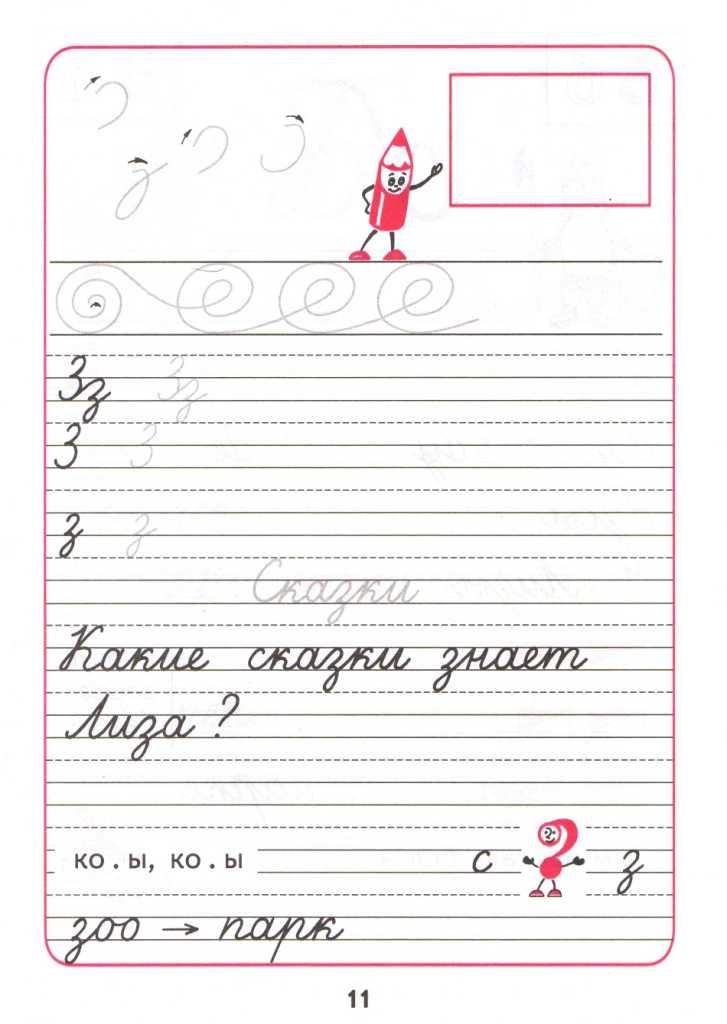 Зз Зз
З З
з з
Сказки
Какие сказки знает
Лиза ?
ко . ы, ко . ы с ? з
зоо → парк
11